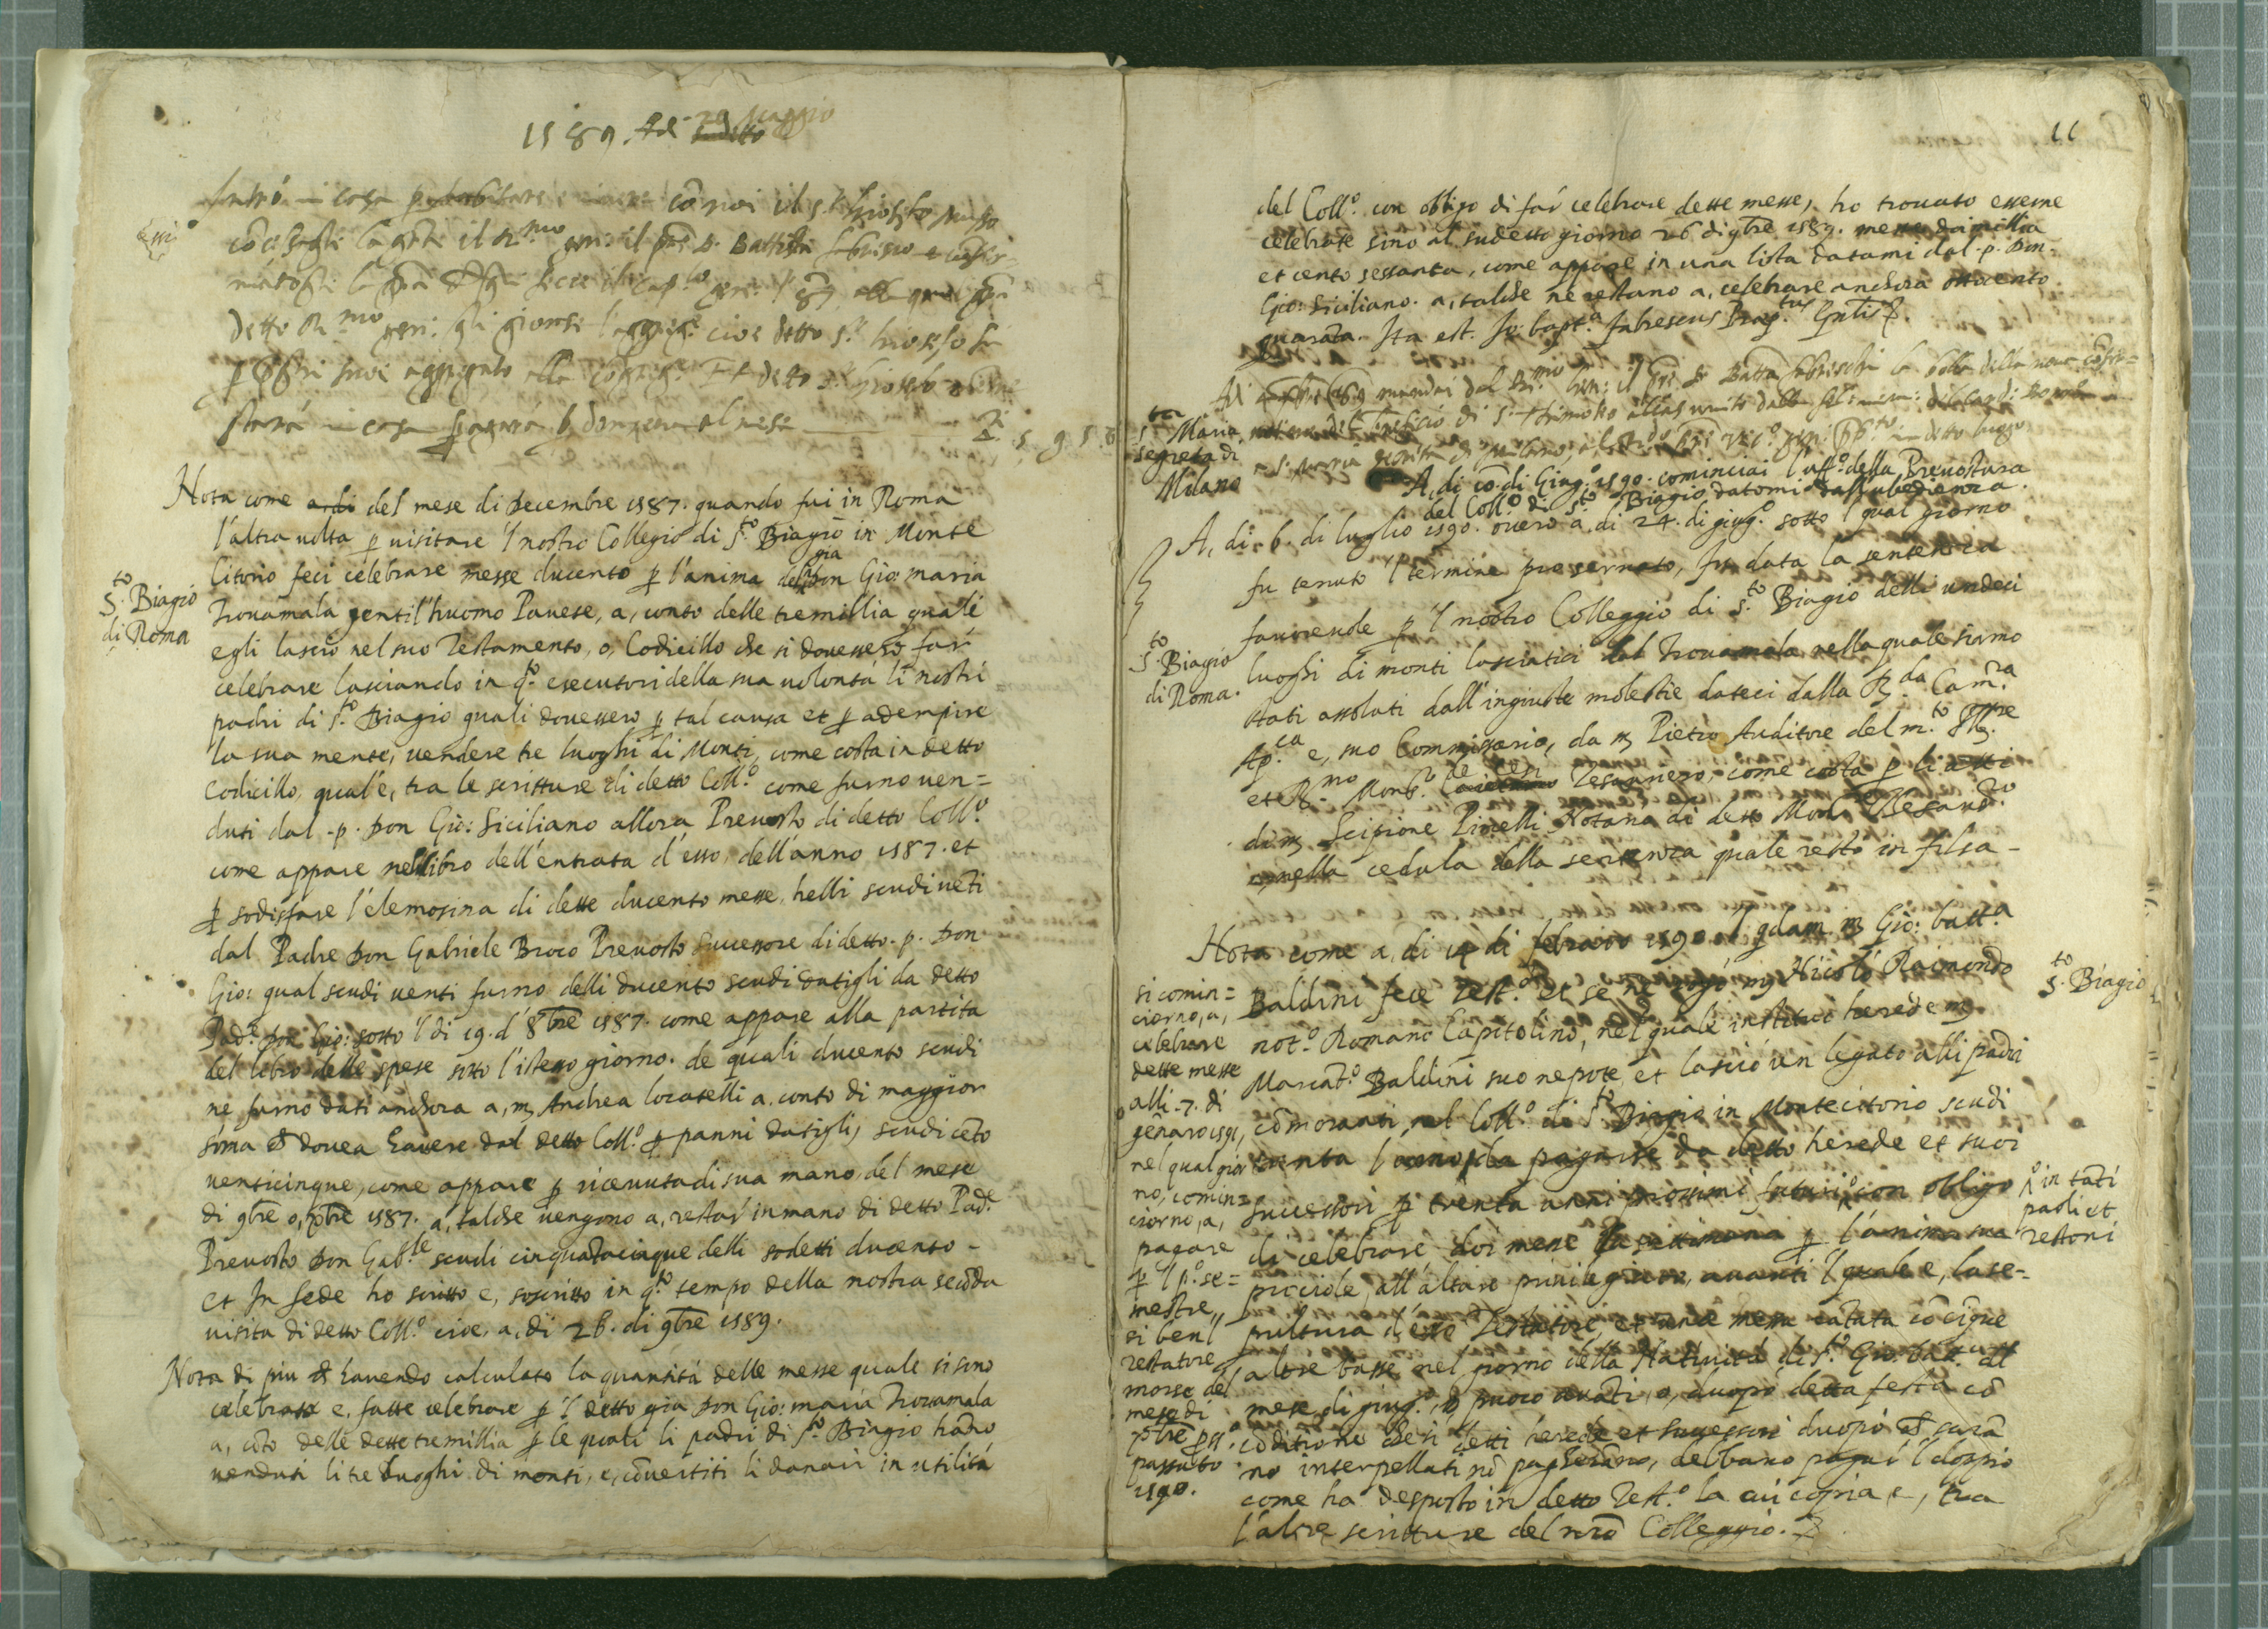 1589. Adi 29 Maggio
detto Rmo gen: gli gionse
Nota come a, di del mese di Decembre 1587. quando fui in Roma
l'altra uolta p uisitare 'l nostro Collegio di S.to Biagio in Monte
Citorio feci celebrare messe ducento p l'anima del gia don Gio: maria
S.to Biagio
di Roma
Trouamala gentil'huomo Pauese, a, conto delle tremillia quale
egli lasciò nel suo Testamento, o, Codicillo che si douessero far
celebrare lasciando in q.to esecutori della sua uolontà li nostri
padri di S.to Biagio quali douessero p tal causa et p adempire
la sua mente, uendere tre luoghi di Monti, come costa in detto
codicillo, qual'è, tra le scritture di detto Coll.o come furno uen=
duti dal .p. Don Gio: Siciliano allora Preuosto di detto Coll.o
come appare nel libro dell'entrata d'esso, dell'anno 1587. et
p sodisfare l'elemosina di dette ducento messe, helli scudi ueti
dal Padre Don Gabriele Broco Preuosto Successore di detto .p. Don
Gio: qual scudi uenti furno delli ducento scudi datigli da detto
Pad.e Don Gio: sotto 'l di 19. d' 8bre 1587. come appare alla partita
del libro delle spese sotto l'istesso giorno. de quali ducento scudi
ne furno dati anchora a, m Andrea locatelli a, conto di maggior
sōma ch douea hauere dal detto Coll.o p panni datigli, scudi cēto
uenticinque, come appare p riceuuta di sua mano, del mese
di 9bre o, Xbre 1587. a, talche uengono a, restar in mano di detto Pad.e
Preuosto Don Gab.le scudi cinquātacinque delli sodetti ducento -
et In fede ho scritto e, soscritto in q.to tempo della nostra secōda
uisita di detto Coll.o cioe, a, di 26. di 9bre 1589.
Nota di piu ch hauendo calculato la quantità delle messe quale si sino
celebrate e, fatte celebrare p 'l detto gia Don Gio: maria Trouamala
a, cōto delle dette tremillia p le quali li padri di S.to Biagio hāno
uenduti li tre luoghi di monti, e, cōuertiti li danari in utilità
del Coll.o con obligo di far celebrare dette messe, ho trouato esserne
celebrate sino al sudetto giorno 26 di 9bre 1589. messe doimillia
et cento sessanta, come appare in una lista datami dal .p. Don
Gio: Siciliano. a, talche ne restano a, celebrare anchora ottocento
quarāta. Ita est. Jo: bapt.a fabrescus Prep.tus Gn̄lis.
S.ta Maria
segreta di
Milano
A, di io di Giug.o 1590. cominciai l'uff.o della Preuostura
del Coll.o di S.to Biagio datomi dall'ubedienza.
A, di 6. di luglio 1590. ouero a, di 24. di giug.o sotto 'l qual giorno
fu tenuto 'l termine preseruato, fu data la sentenza
fauoreuole p 'l nostro Colleggio di S.to Biagio delli undeci
S.to Biagio
di Roma.
luoghi di monti lasciatici dal Trouamala nella quale siamo
stati assoluti dall'ingiuste molestie dateci dalla R.da Cam.ra
Ap.ca e, suo Commissario, da m Pietro Auditore del m.to Ill.re
et R.mo Mons.r de Cesi Tesauriero, come costa p li atti
di m Scipione Pinelli Notaro di detto Mons.r Tesaur.ro
e, nella cedula della sentenza quale restò in filsa -
Nota come a, di 14 di febraro 1590 'l qdam m Gio: batt.a
S.to Biagio
Baldini fece Test.o et se ne rogó m Nicolò Raimondo
not.o Romano Capitolino, nel quale instituì herede m
Marcāt.o Baldini suo nepote et lasciò un legato alli padri
cōmoranti nel Coll.o di S.to Biagio in Montecitorio scudi
trenta l'anno, da pagarse da detto herede et suoi
successori p trenta anni prossimi futuri con obligo
in tāti
paoli et
restoni
di celebrare doi messe la settimana p l'anima sua
picciole, all'altare priuilegiato, auanti 'l quale e, la se=
pultura d'esso Testatore, et una messa cātata cō cīque
altre basse nel giorno della Natiuità di S.to Gio. batt.a del
mese di giug.o, o, puoco auāti, o, duopò detta festa cō
cōditione che si detti herede et successori duopò ch sarā
no interpellati nō pagherāno, debbano pagar 'l doppio
come ha desposto in detto Test.o la cui copia, e, tra
l'altre scritture del nrō Colleggio.
si comin=
ciorno, a,
celebrare
dette messe
alli .7. di
genaro 1591,
nel qual gior
no, comin=
ciorno, a,
pagare
p 'l p.o se=
mestre,
si ben'l
testatore
morse del
mese di
Xbre
passato
1590.